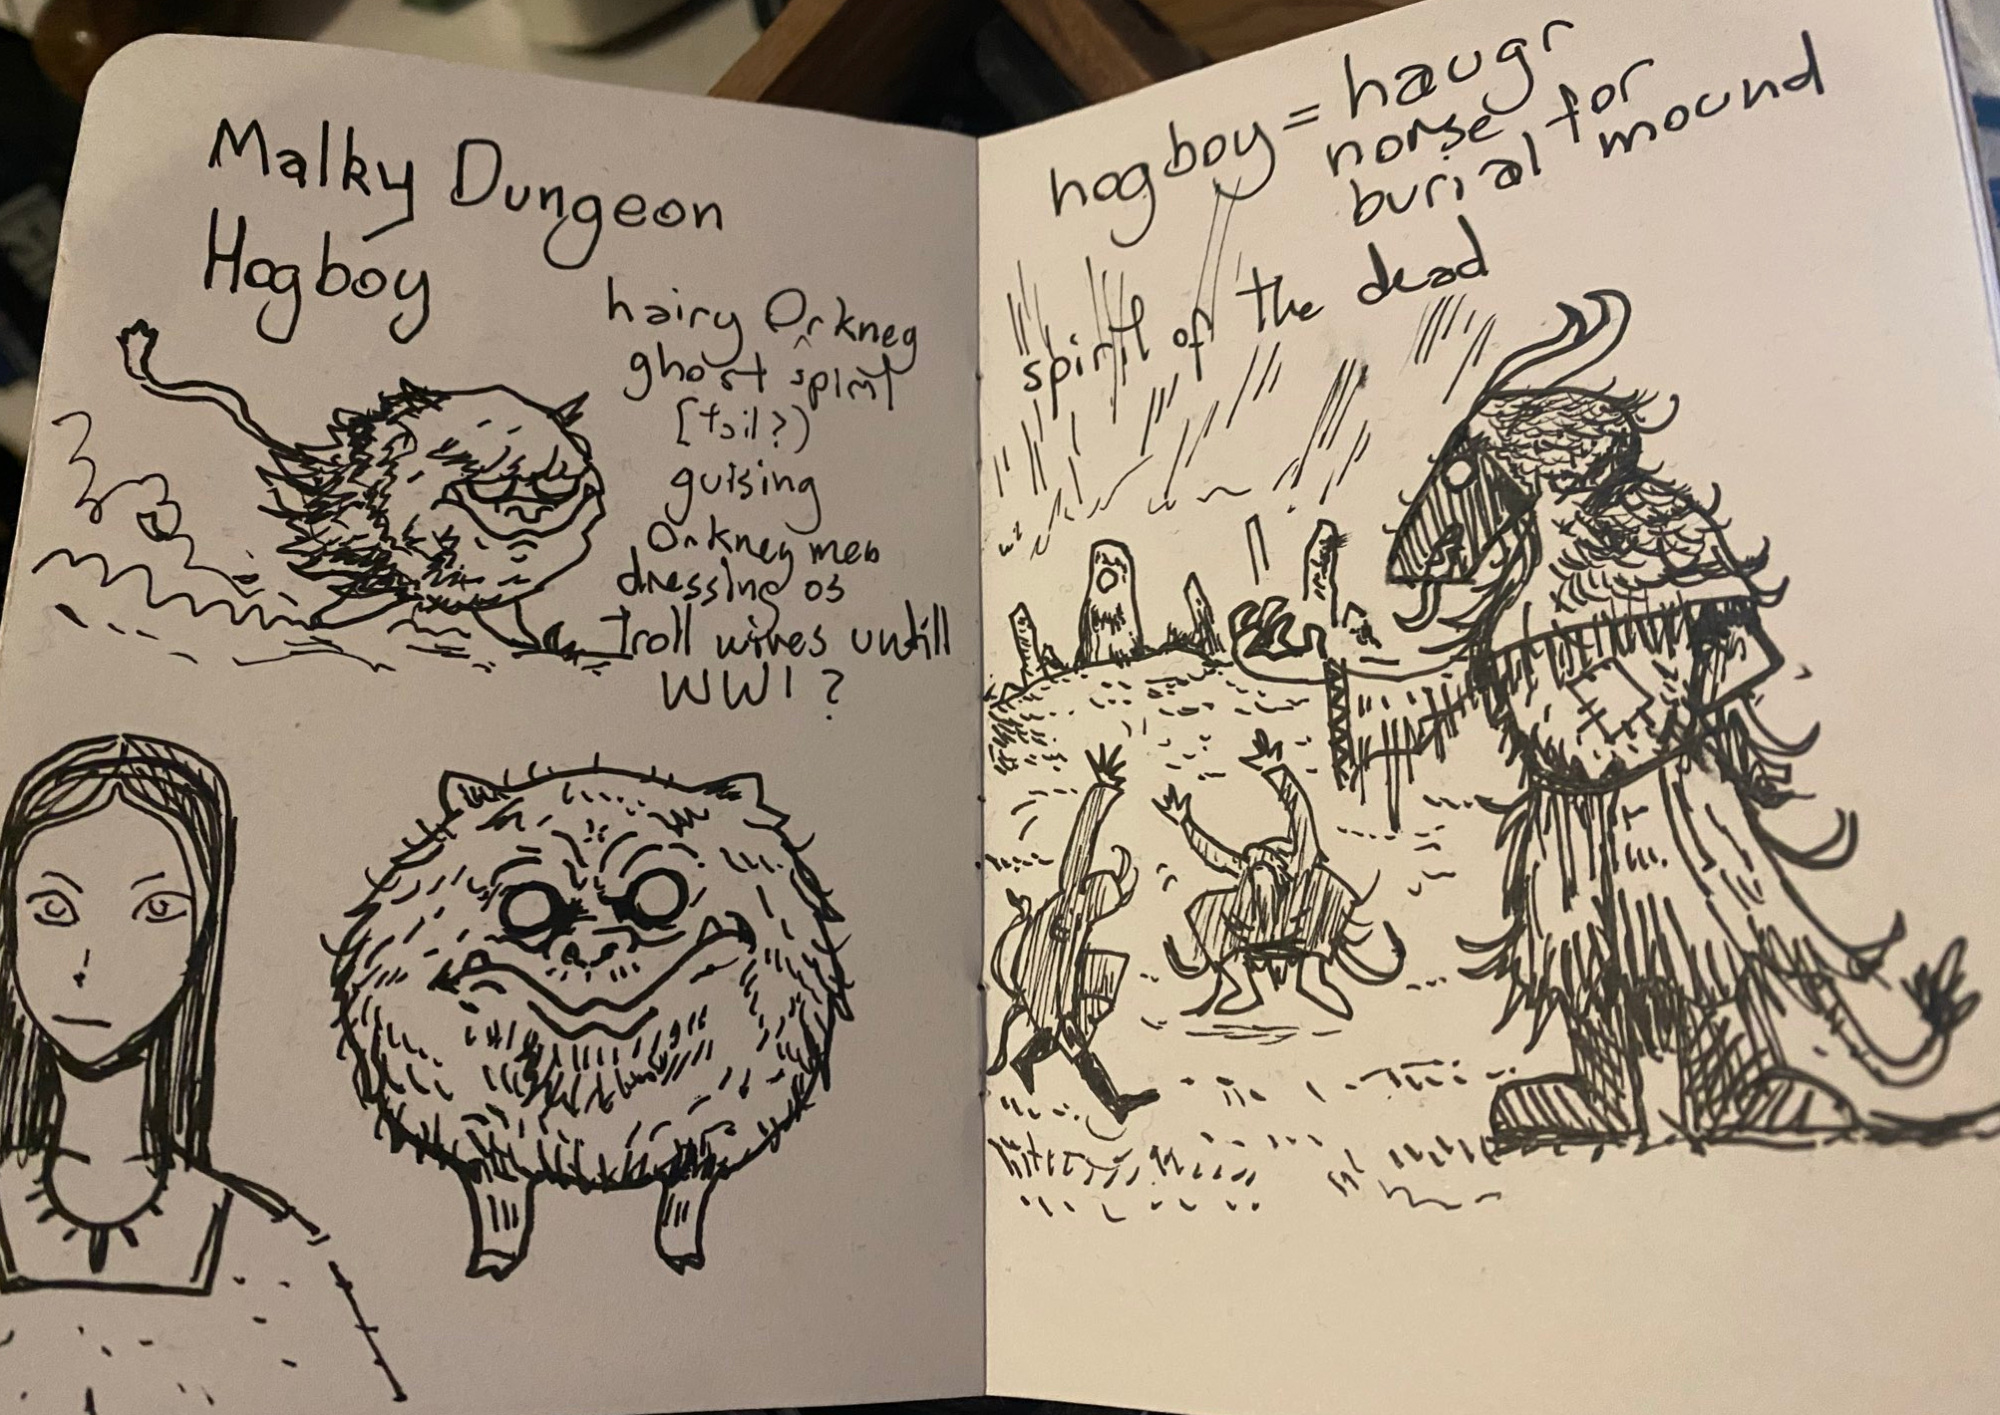 Malky Dungeon
Hogboy
hairy Orkney
ghost spirit
[tail?)
guising
Orkney men
dressing as
Troll wives untill
WW1?
hogboy = haugr
norse for
burial mound
spirit of the dead